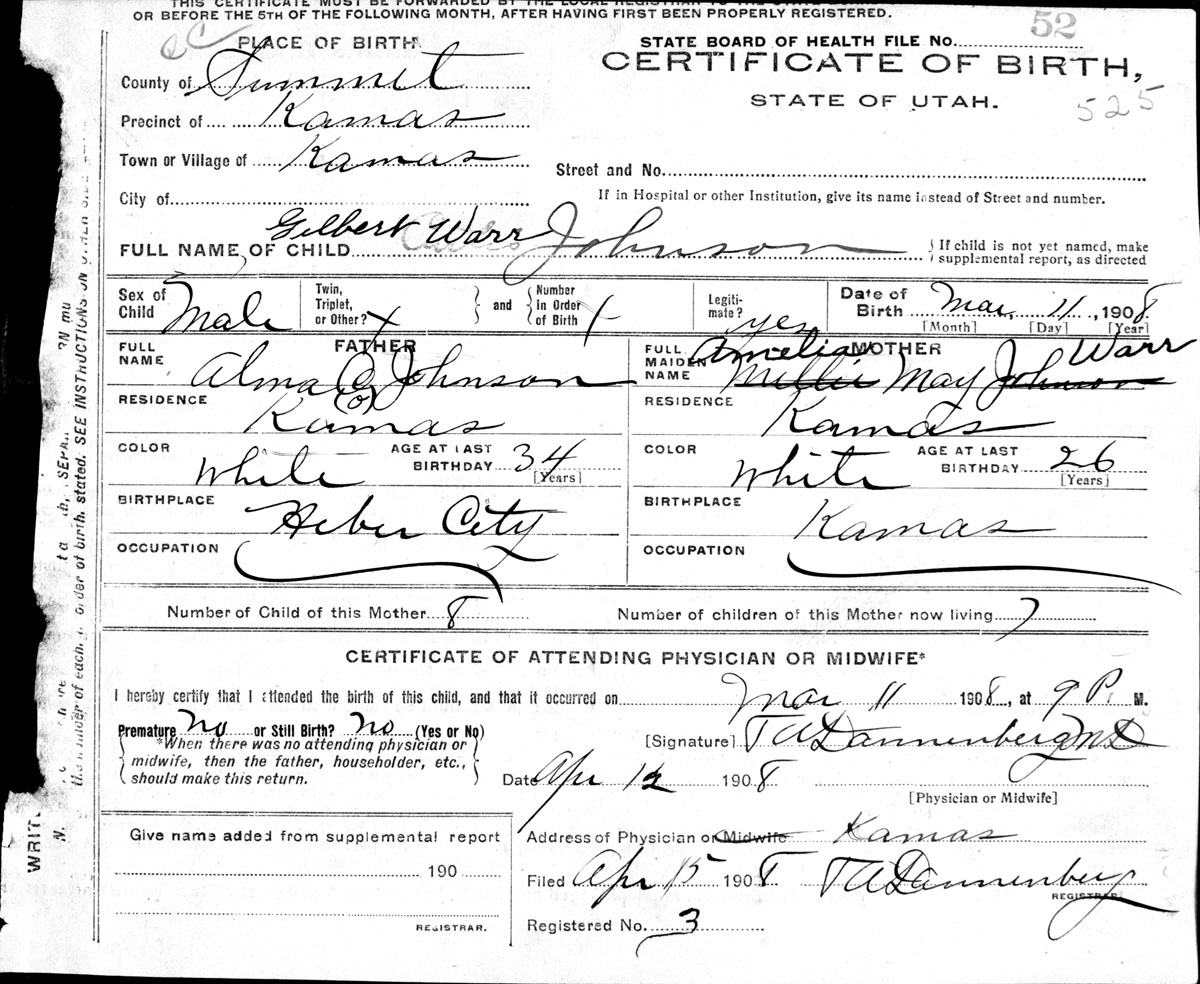 THIS CERTIFICATE MUST BE FORWARDED BY THE LOCAL REGISTRAR TO THE STATE
OR BEFORE THE 5TH OF THE FOLLOWING MONTH, AFTER HAVING FIRST BEEN PROPERLY REGISTERED.
PLACE OF BIRTH
STATE BOARD OF HEALTH FILE No. 52
County of Summit
CERTIFICATE OF BIRTH,
STATE OF UTAH.
525
Precinct of Kamas
Town or Village of Kamas
Street and No.
City of
If in Hospital or other Institution, give its name instead of Street and number.
FULL NAME OF CHILD Gilbert Warr Johnson
If child is not yet named, make supplemental report, as directed
Sex of Child Male
Twin, Triplet, or Other? x
and
Number in Order of Birth
Legiti- mate? yes
Date of Birth Mar. 11, 1908
[Month] [Day] [Year]
FATHER
FULL NAME Alma C Johnson
RESIDENCE Kamas
COLOR White
AGE AT LAST BIRTHDAY 34
[Years]
BIRTHPLACE Heber City
OCCUPATION
MOTHER
FULL MAIDEN NAME Amelia Millie May Johnson Warr
RESIDENCE Kamas
COLOR White
AGE AT LAST BIRTHDAY 26
[Years]
BIRTHPLACE Kamas
OCCUPATION
Number of Child of this Mother 8
Number of children of this Mother now living 7
CERTIFICATE OF ATTENDING PHYSICIAN OR MIDWIFE*
I hereby certify that I attended the birth of this child, and that it occurred on Mar 11 1908, at 9 P. M.
Premature no or Still Birth? no (Yes or No)
*When there was no attending physician or
midwife, then the father, householder, etc.,
should make this return.
[Signature] T A Dannenberg MD
Date Apr 12 1908
[Physician or Midwife]
Give name added from supplemental report
190
REGISTRAR.
Address of Physician or Midwife Kamas
Filed Apr 15 1908 T A Dannenberg
REGISTRAR
Registered No. 3
order of birth, stated. SEE INSTRUCTIONS ON